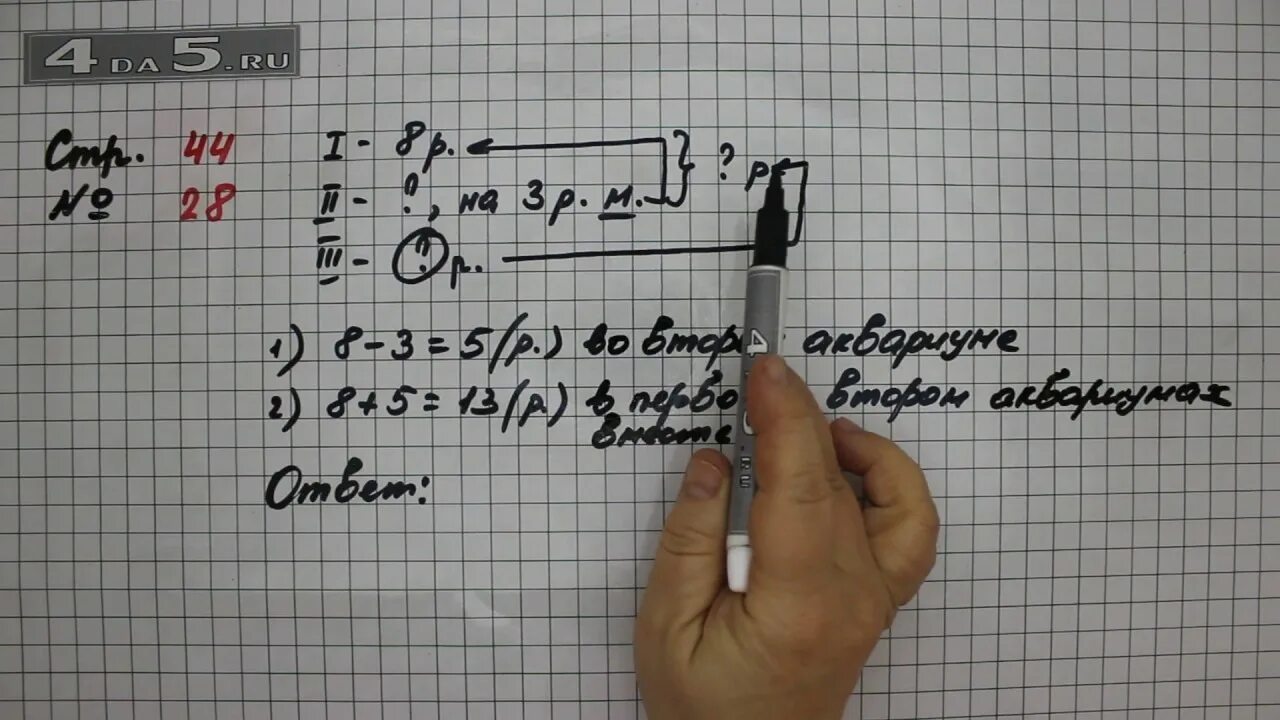 4DA5.RU
Стр. 44
№ 28
I - 8р.
II - ?, на 3р. м. } ? р
III - ? р.
1) 8-3=5(р.) во аквариуме
2) 8+5=13(р.) в втором аквариумах
вместе
Ответ:
4 .RU